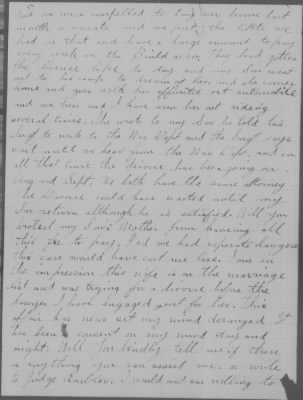 And we were compelled to buy our home last
month or vacate and we put the little we
had in that and have a large amount to pay
every week in the Build assn. They had gotten
the license
out to his camp to
home and goes with her
and we been sued. I have seen her out riding
several times. She wrote to my Son he told his
Sergt to write to the War Dept and the Sergt says
wait until we hear from the War Dept, and in
all that time the divorce has been going on
Aug and Sept. We both have the same attorney
The Divorce could have waited until my
Son return although he is satisfied. Will you
protect my Son's Mother from having all
this fee to pay. Had we had separate lawyers
this case would have cost me less. I am in
the impression this wife is on the marriage
list and was trying for a divorce before the
lawyer I have engaged sent for her. This
affair has near set my mind deranged It
has been a on my mind day and
night. Will you kindly tell me if there
is anything you can assist me, or write
to Judge I would and am willing to